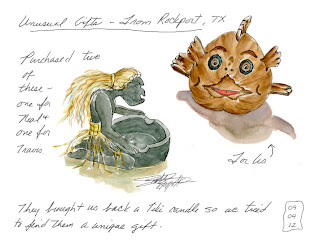 Unusual Gifts - From Rockport, TX
Purchased two
of
these -
one for
Neal &
one for
Travis.
For Us
They brought us back a Tiki candle so we tried
to find them a unique gift.
09
04
12